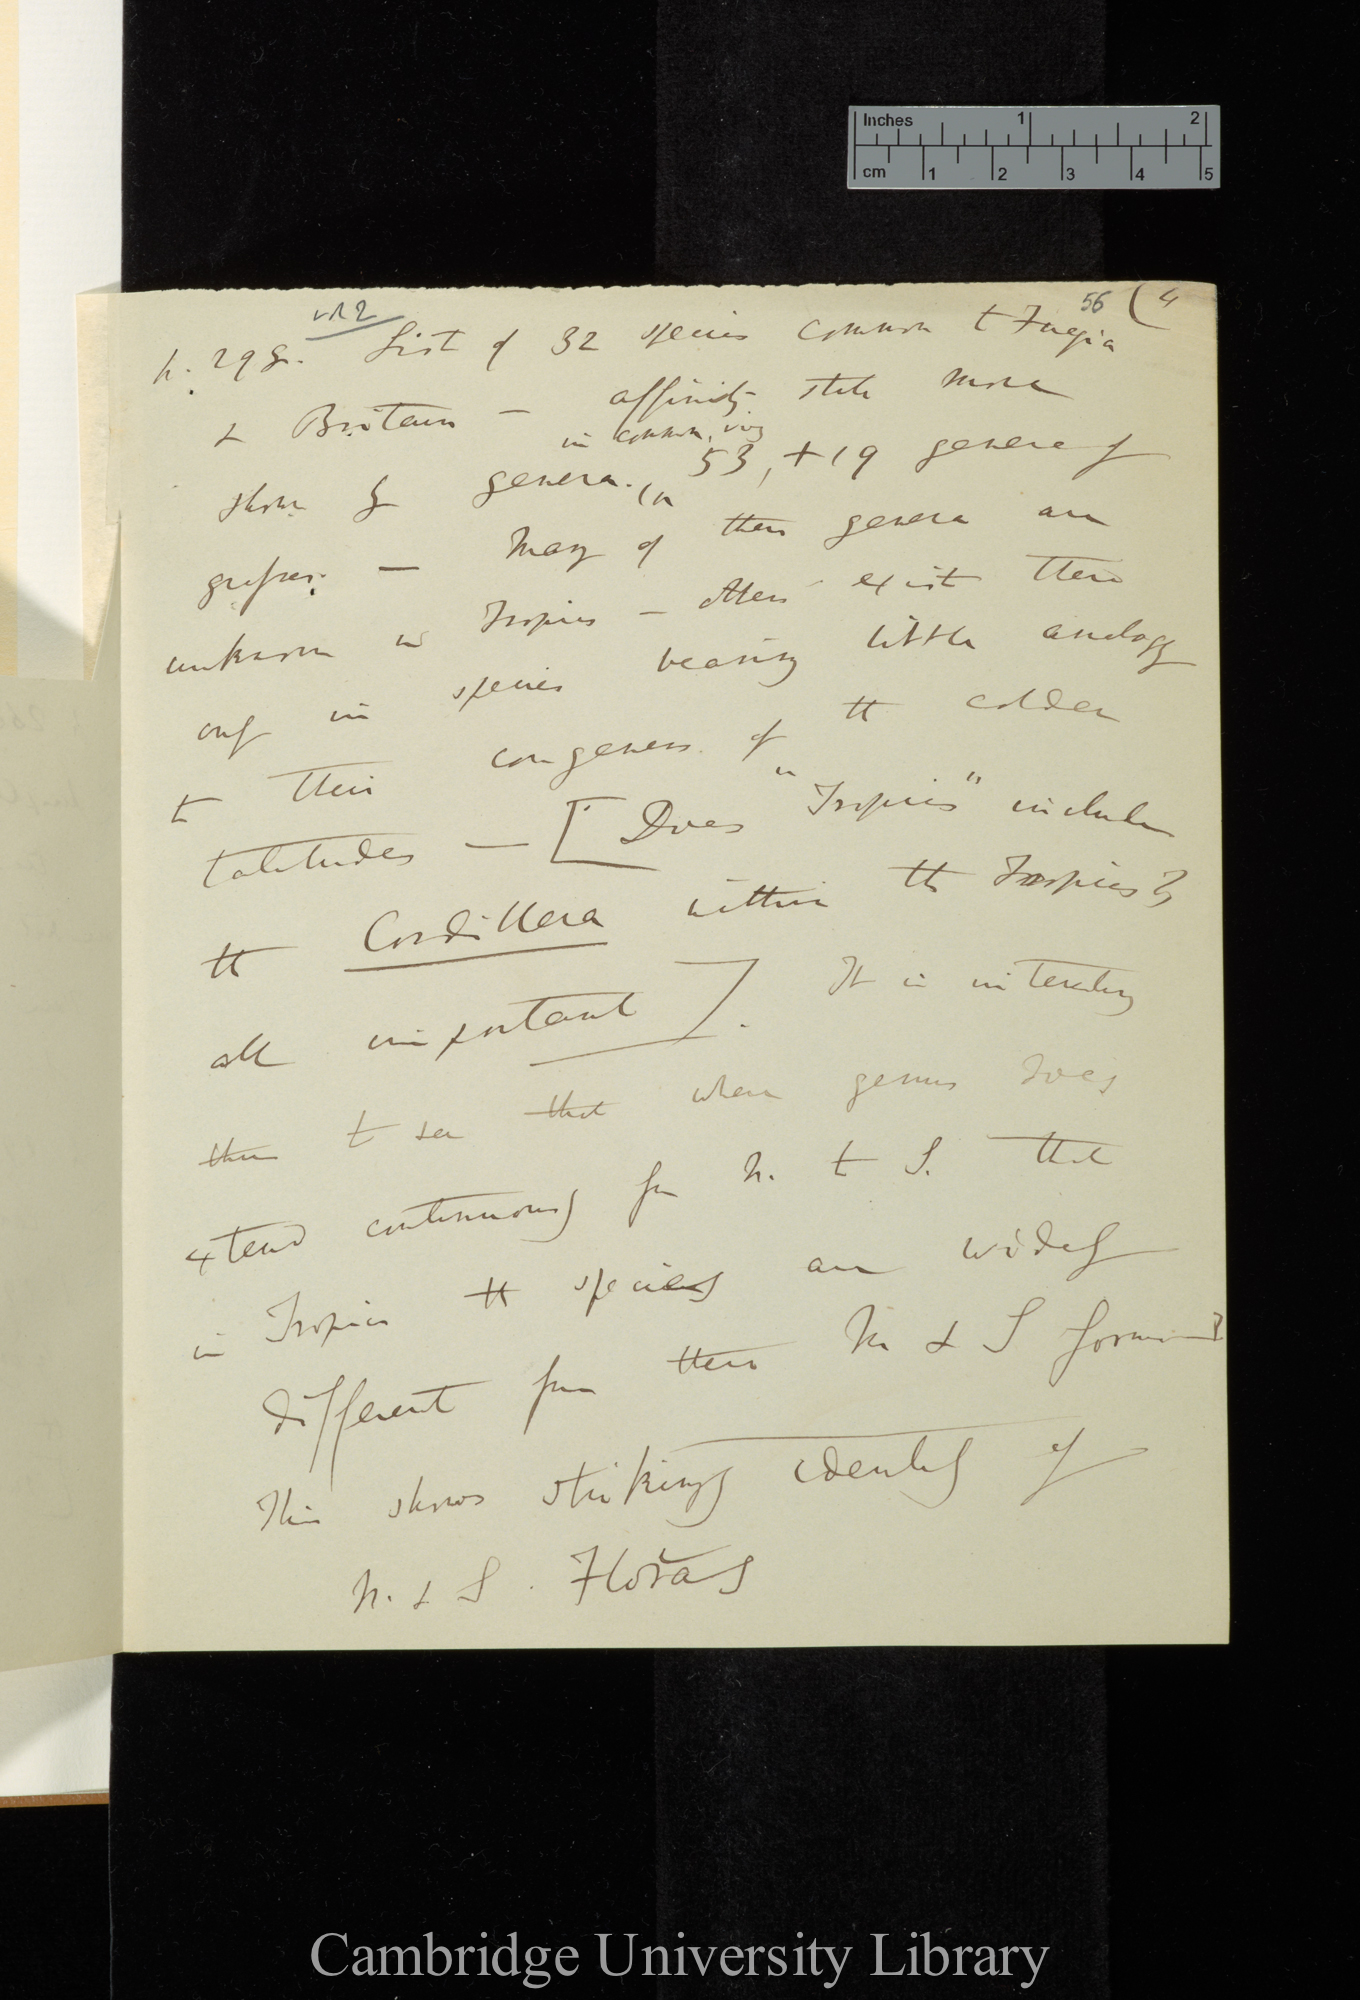 Inches 1 2
cm 1 2 3 4 5
56 (4
p. 298. List of 32 species common to Fuegia
& Britain — affinity still more
in common, viz
shown by genera. 53, + 19 genera of
grasses. — Many of these genera are
unknown in Tropics — others exist there
only in species bearing little analogy
to their congeners of the colder
latitudes — [Does "Tropics" include
the Cordillera within the Tropics?
all important]. It is interesting
then to see that when genus does
extend continuously from N. to S. that
in Tropics the species are widely
different from these N. & S forms
This shows striking identity of
N. & S. Floras
Cambridge University Library